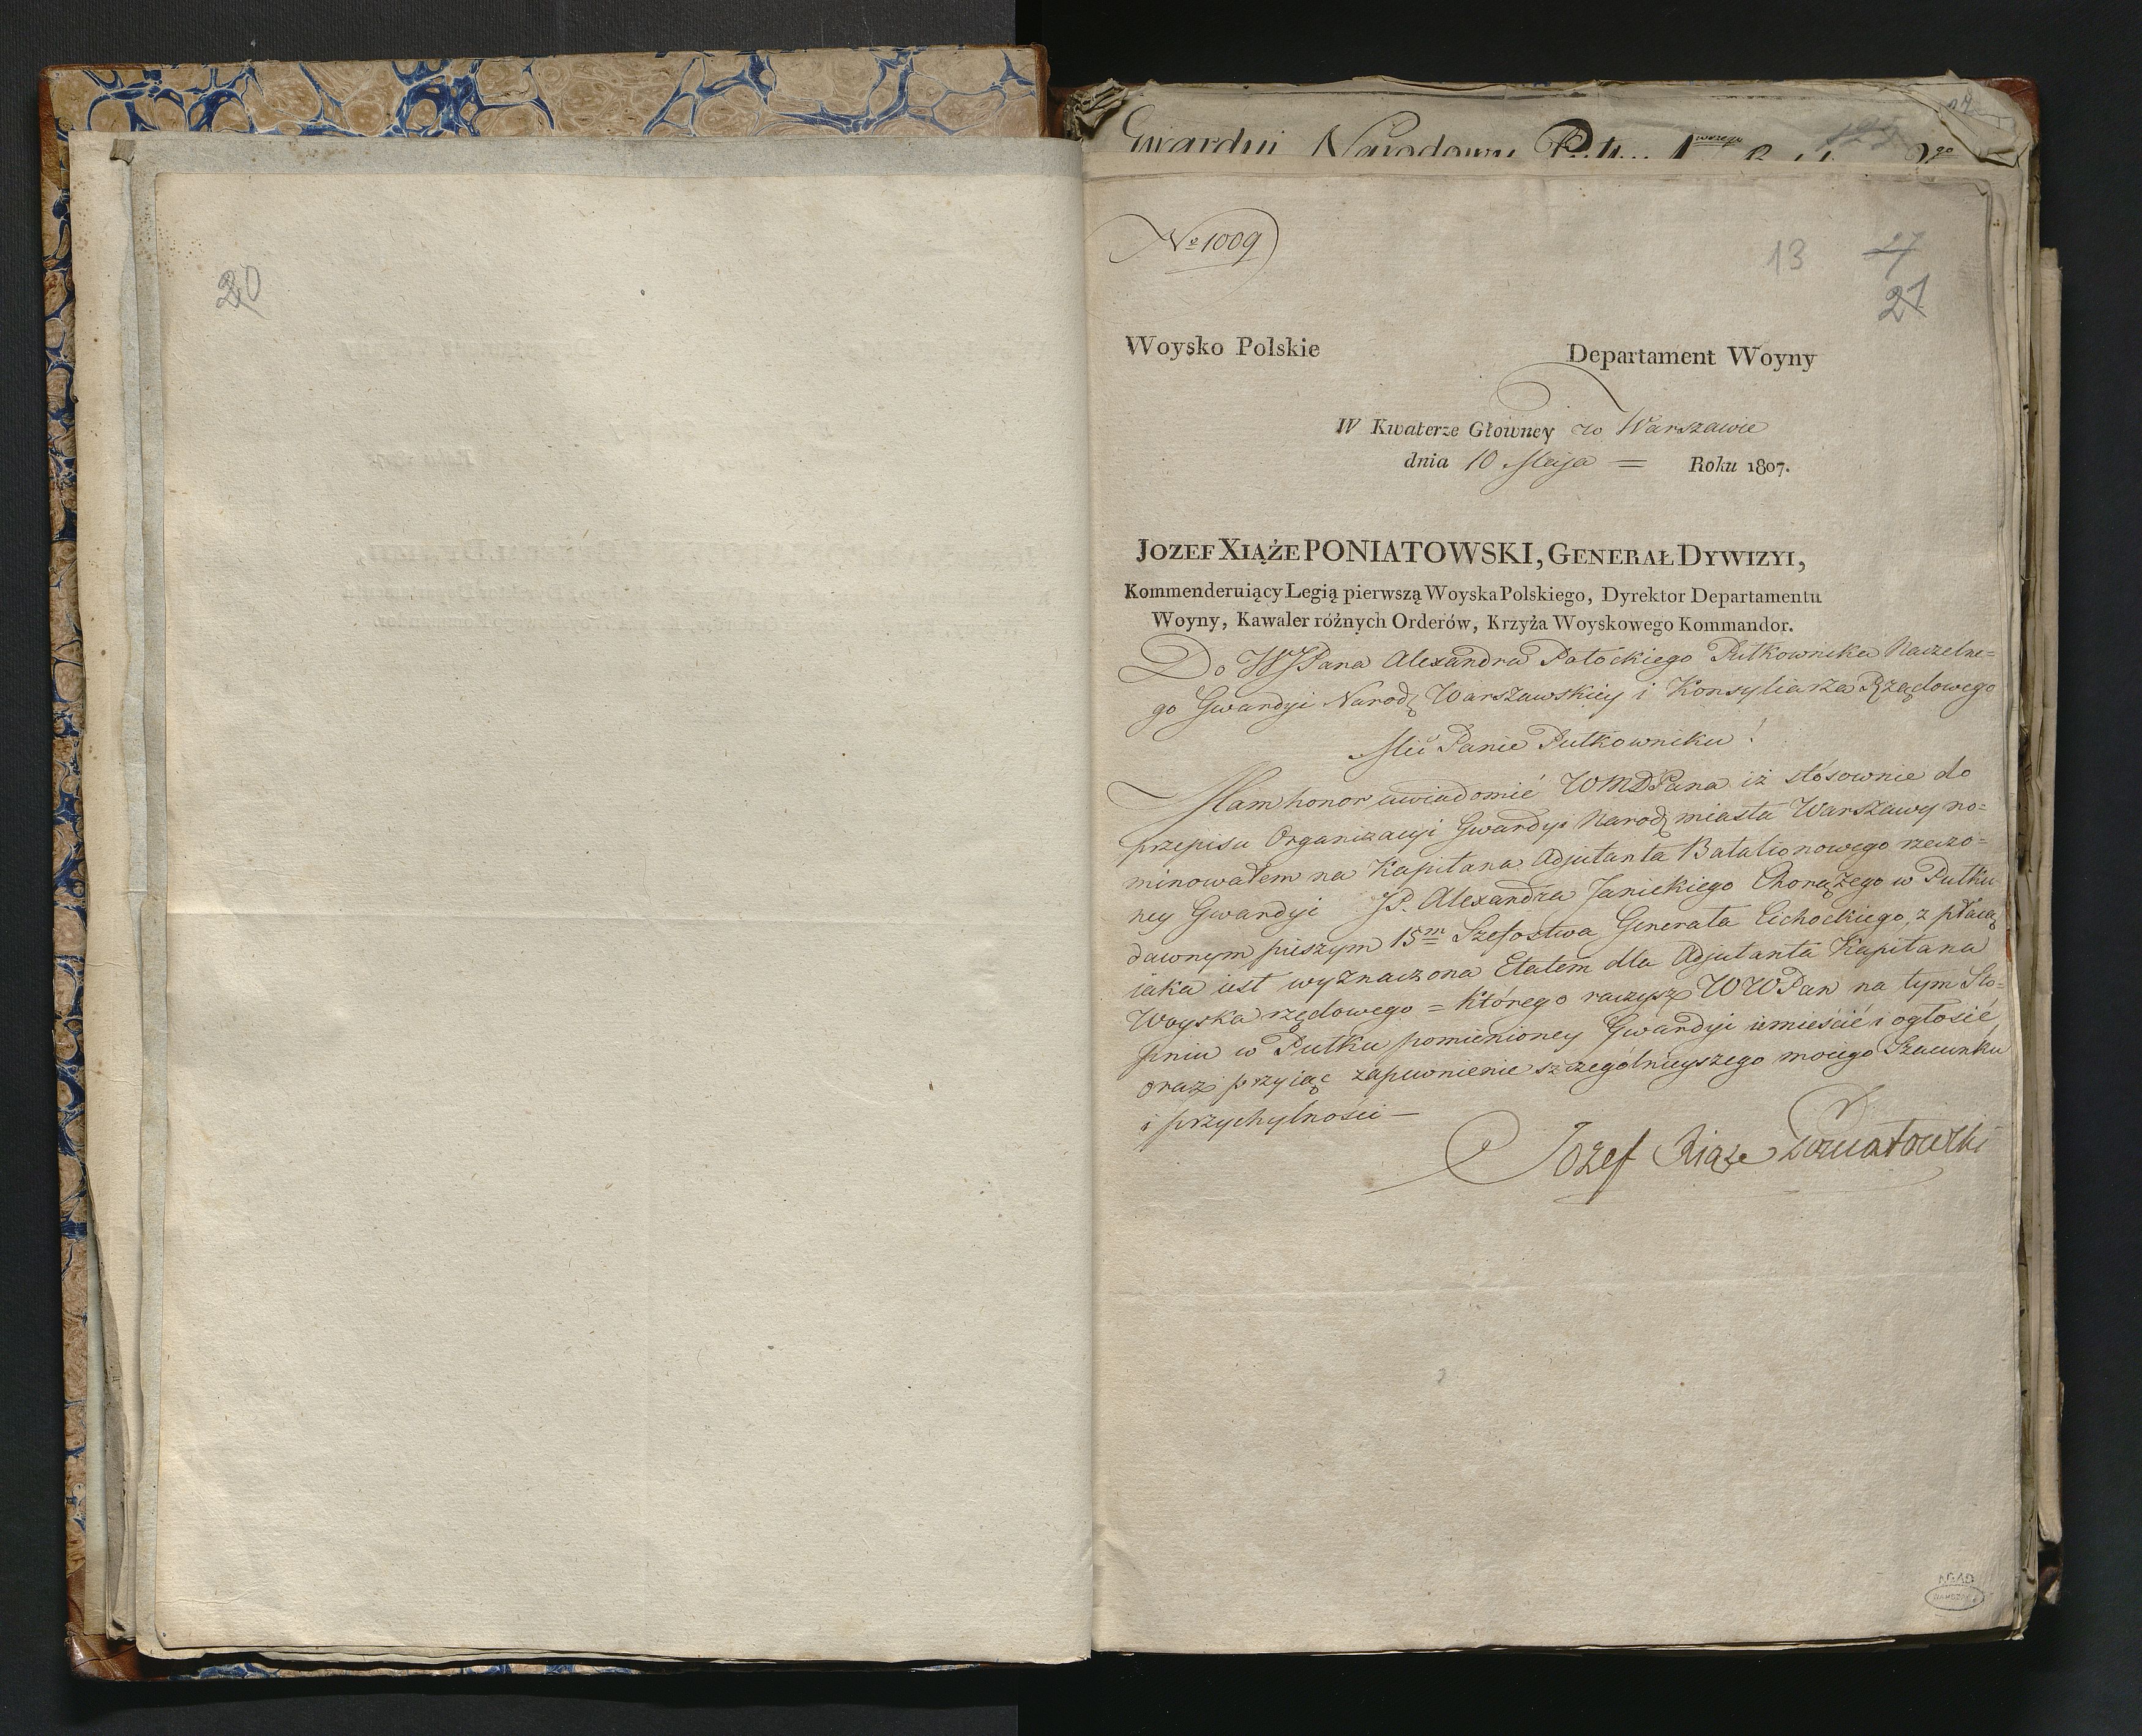 20
Gwardyi Narodowey Pułku 1wszego
No 1009
13 27
21
Woysko Polskie Departament Woyny
W Kwaterze Głowney w Warszawie
dnia 10 Maja = Roku 1807.
JOZEF XIĄŻE PONIATOWSKI, GENERAŁ DYWIZYI,
Kommenderuiący Legią pierwszą Woyska Polskiego, Dyrektor Departamentu
Woyny, Kawaler różnych Orderów, Krzyża Woyskowego Kommandor.
Do WJPana Alexandra Potockiego Pułkownika Naczelne=
go Gwardyi Narod. Warszawskiey i Konsyliarza Rządowego
Mci Panie Pułkowniku!
Mam honor uwiadomić WMDPana iż stósownie do
przepisu Organizacyi Gwardyi Narod. miasta Warszawy no=
minowałem na Kapitana Adjutanta Batalionowego rzeczo=
ney Gwardyi JP. Alexandra Janickiego Chorążego w Pułku
dawnym pieszym 15m Szefostwa Generała Cichockiego, z płacą
iaka iest wyznaczona Etatem dla Adjutanta Kapitana
Woyska rzędowego = którego raczysz WWPan na tym Sto=
pniu w Pułku pomienioney Gwardyi umieścić i ogłosić,
oraz przyiąć zapewnienie szczególnieyszego moiego Szacunku
i przychylności —
Jozef Xiąże Poniatowski
AGAD
WARSZAWA